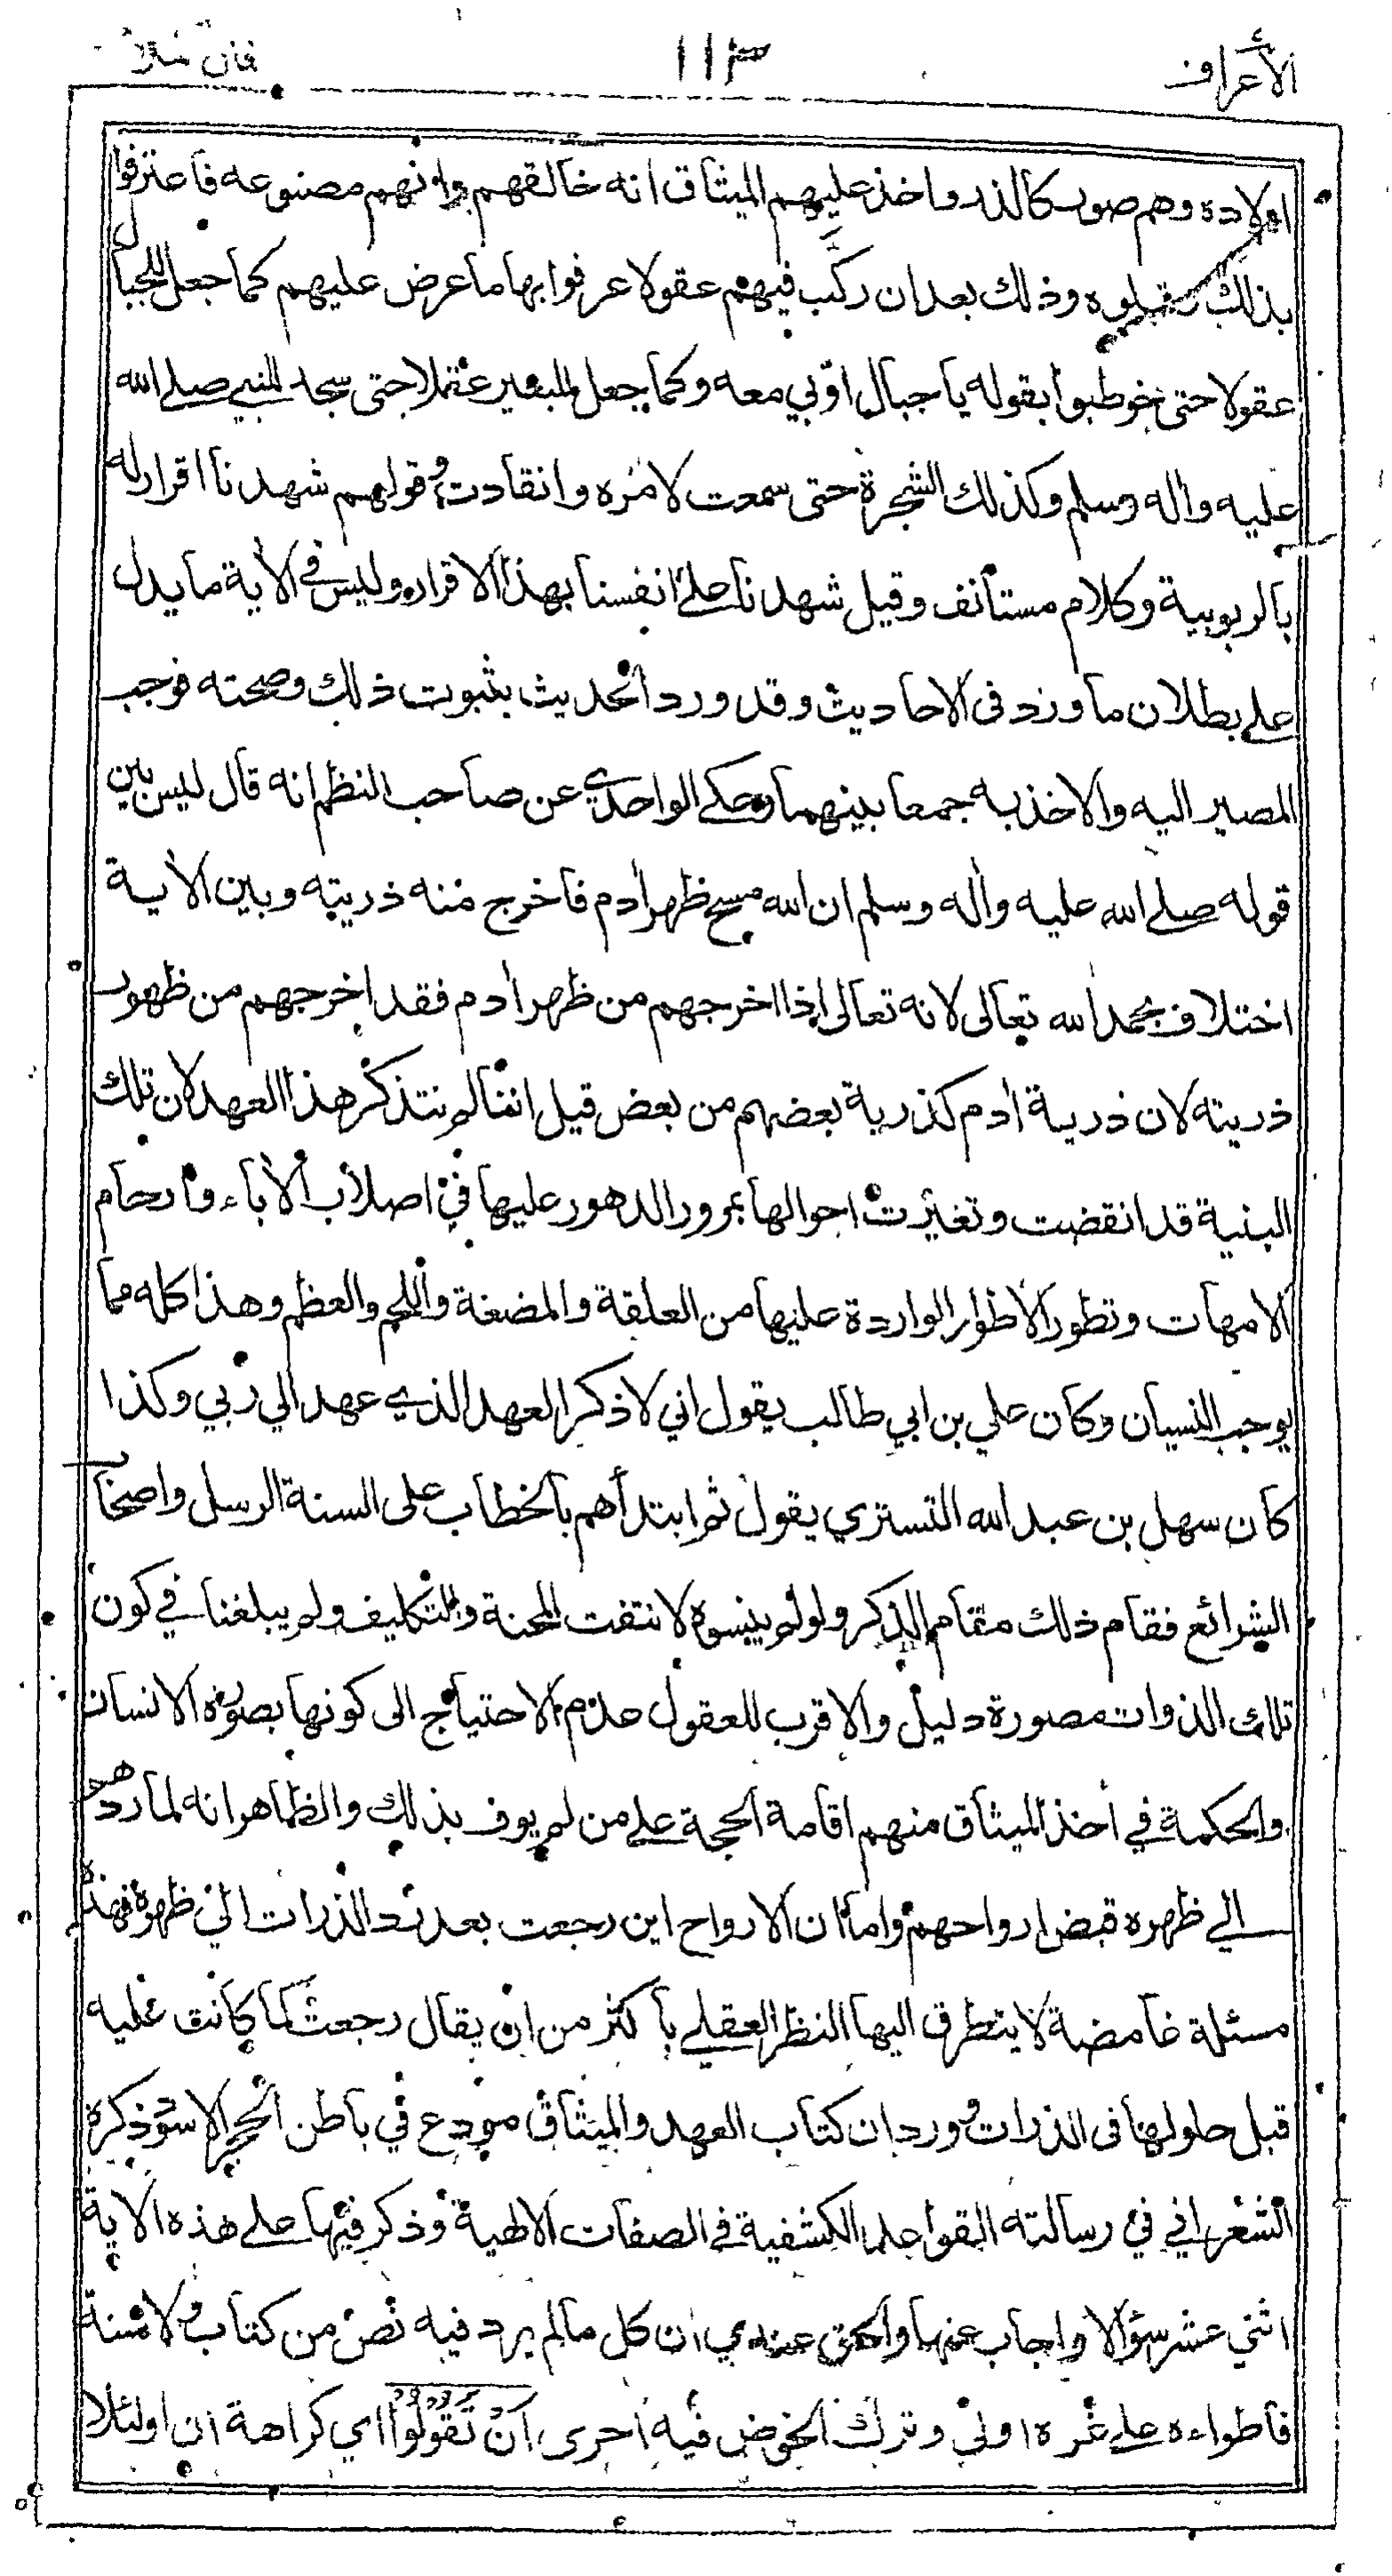 الأعراف ١١٣ قال الملأ
اولاده وهم صور كالذر واخذ عليهم الميثاق انه خالقهم وانهم مصنوعه فاعترفوا
بذلك وقبلوه وذلك بعد ان ركب فيهم عقولا عرفوا بها ما عرض عليهم كما جعل للجبال
عقولا حتى خوطبوا بقوله يا جبال اوّبي معه وكما جعل للبعير عقلا حتى سجد للنبي صلى الله
عليه واٰله وسلم وكذلك الشجرة حتى سمعت لامره وانقادت وقولهم شهدنا اقرار له
بالربوبية وكلام مستأنف وقيل شهدنا على انفسنا بهذا الاقرار وليس في الأية ما يدل
على بطلان ما ورد في الاحاديث وقد ورد الحديث بثبوت ذلك وصحته فوجب
المصير اليه والاخذ به جمعا بينهما وحكى الواحدي عن صاحب النظم انه قال ليس بين
قوله صلى الله عليه واٰله وسلم ان الله مسح ظهر اٰدم فاخرج منه ذريته وبين الأية
اختلاف بحمد الله تعالى لانه تعالى اذا اخرجهم من ظهر اٰدم فقد اخرجهم من ظهور
ذريته لان ذرية اٰدم كذرية بعضهم من بعض قيل اننا لم نتذكر هذا العهد لان تلك
البنية قد انقضت وتغيرت احوالها بمرور الدهور عليها في اصلاب الأباء وارحام
الامهات وتطور الاطوار الواردة عليها من العلقة والمضغة واللحم والعظم وهذا كله مما
يوجب النسيان وكان علي بن ابي طالب يقول اني لاذكر العهد الذي عهد الي ربي وكذا
كان سهل بن عبد الله التستري يقول ثم ابتدأهم بالخطاب على السنة الرسل واصحاب
الشرائع فقام ذلك مقام الذكر ولو لم ينسوه لانتفت المحنة والتكليف ولم يبلغنا في كون
تلك الذوات مصورة دليل والاقرب للعقول عدم الاحتياج الى كونها بصورة الانسان
والحكمة في اخذ الميثاق منهم اقامة الحجة على من لم يوف بذلك والظاهر انه لما ردهم
الى ظهره قبض ارواحهم واما ان الارواح اين رجعت بعد رد الذرات الى ظهره فهذه
مسئلة غامضة لا يتطرق اليها النظر العقلي باكثر من ان يقال رجعت لما كانت عليه
قبل حلولها في الذرات وورد ان كتاب العهد والميثاق مودع في باطن الحجر الاسود ذكره
الشعراني في رسالته القواعد الكشفية في الصفات الالهية وذكر فيها على هذه الأية
اثني عشر سؤالا واجاب عنها والحق عندي ان كل ما لم يرد فيه نص من كتاب ولا سنة
فاطواءه على غره اولى وترك الخوض فيه احرى اَنْ تَقُوْلُوْا اي كراهة ان او لئلا